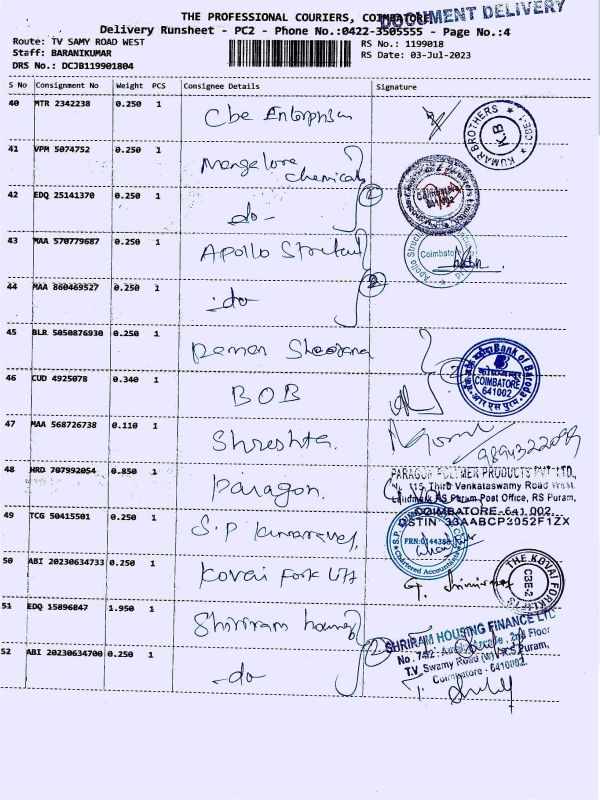 DOCUMENT DELIVERY
THE PROFESSIONAL COURIERS, COIMBATORE
Delivery Runsheet - PC2 - Phone No.:0422-3505555 - Page No.:4
Route: TV SAMY ROAD WEST
RS No.: 1199018
Staff: BARANIKUMAR
RS Date: 03-Jul-2023
DRS No.: DCJB119901804
S No Consignment No Weight PCS Consignee Details Signature
40 MTR 2342238 0.250 1 Cbe Enterprises
KUMAR BROTHERS ★ CBE-1 ★ K.B
41 VPM 5074752 0.250 1 Mangalore Chemicals
2
Coimbatore 641002
42 EDQ 25141370 0.250 1 -do-
43 MAA 570779687 0.250 1 Apollo
Apollo Coimbatore
44 MAA 860469527 0.250 1 -do- 2
45 BLR 5050876930 0.250 1 Raman
2
Bank of Baroda COIMBATORE 641002
46 CUD 4925078 0.340 1 BOB
47 MAA 568726738 0.110 1 Shreshta
48 HRD 707992054 0.850 1 Paragon
PARAGON POLYMER PRODUCTS PVT LTD,
No. 115, Third Venkataswamy Road West
Landmark RS Puram Post Office, RS Puram,
COIMBATORE-641 002.
GSTIN 33AABCP3052F1ZX
49 TCG 50415501 0.250 1 S.P
Chartered Accountants
50 ABI 20230634733 0.250 1 Kovai Fork Lift
THE KOVAI FORKLIFTS CBE-2
51 EDQ 15896847 1.950 1 Shriram housing
2
SHRIRAM HOUSING FINANCE LTD
No. 742, 2nd Floor
T.V. Swamy Road (W) R.S Puram,
Coimbatore - 641002.
52 ABI 20230634700 0.250 1 -do-